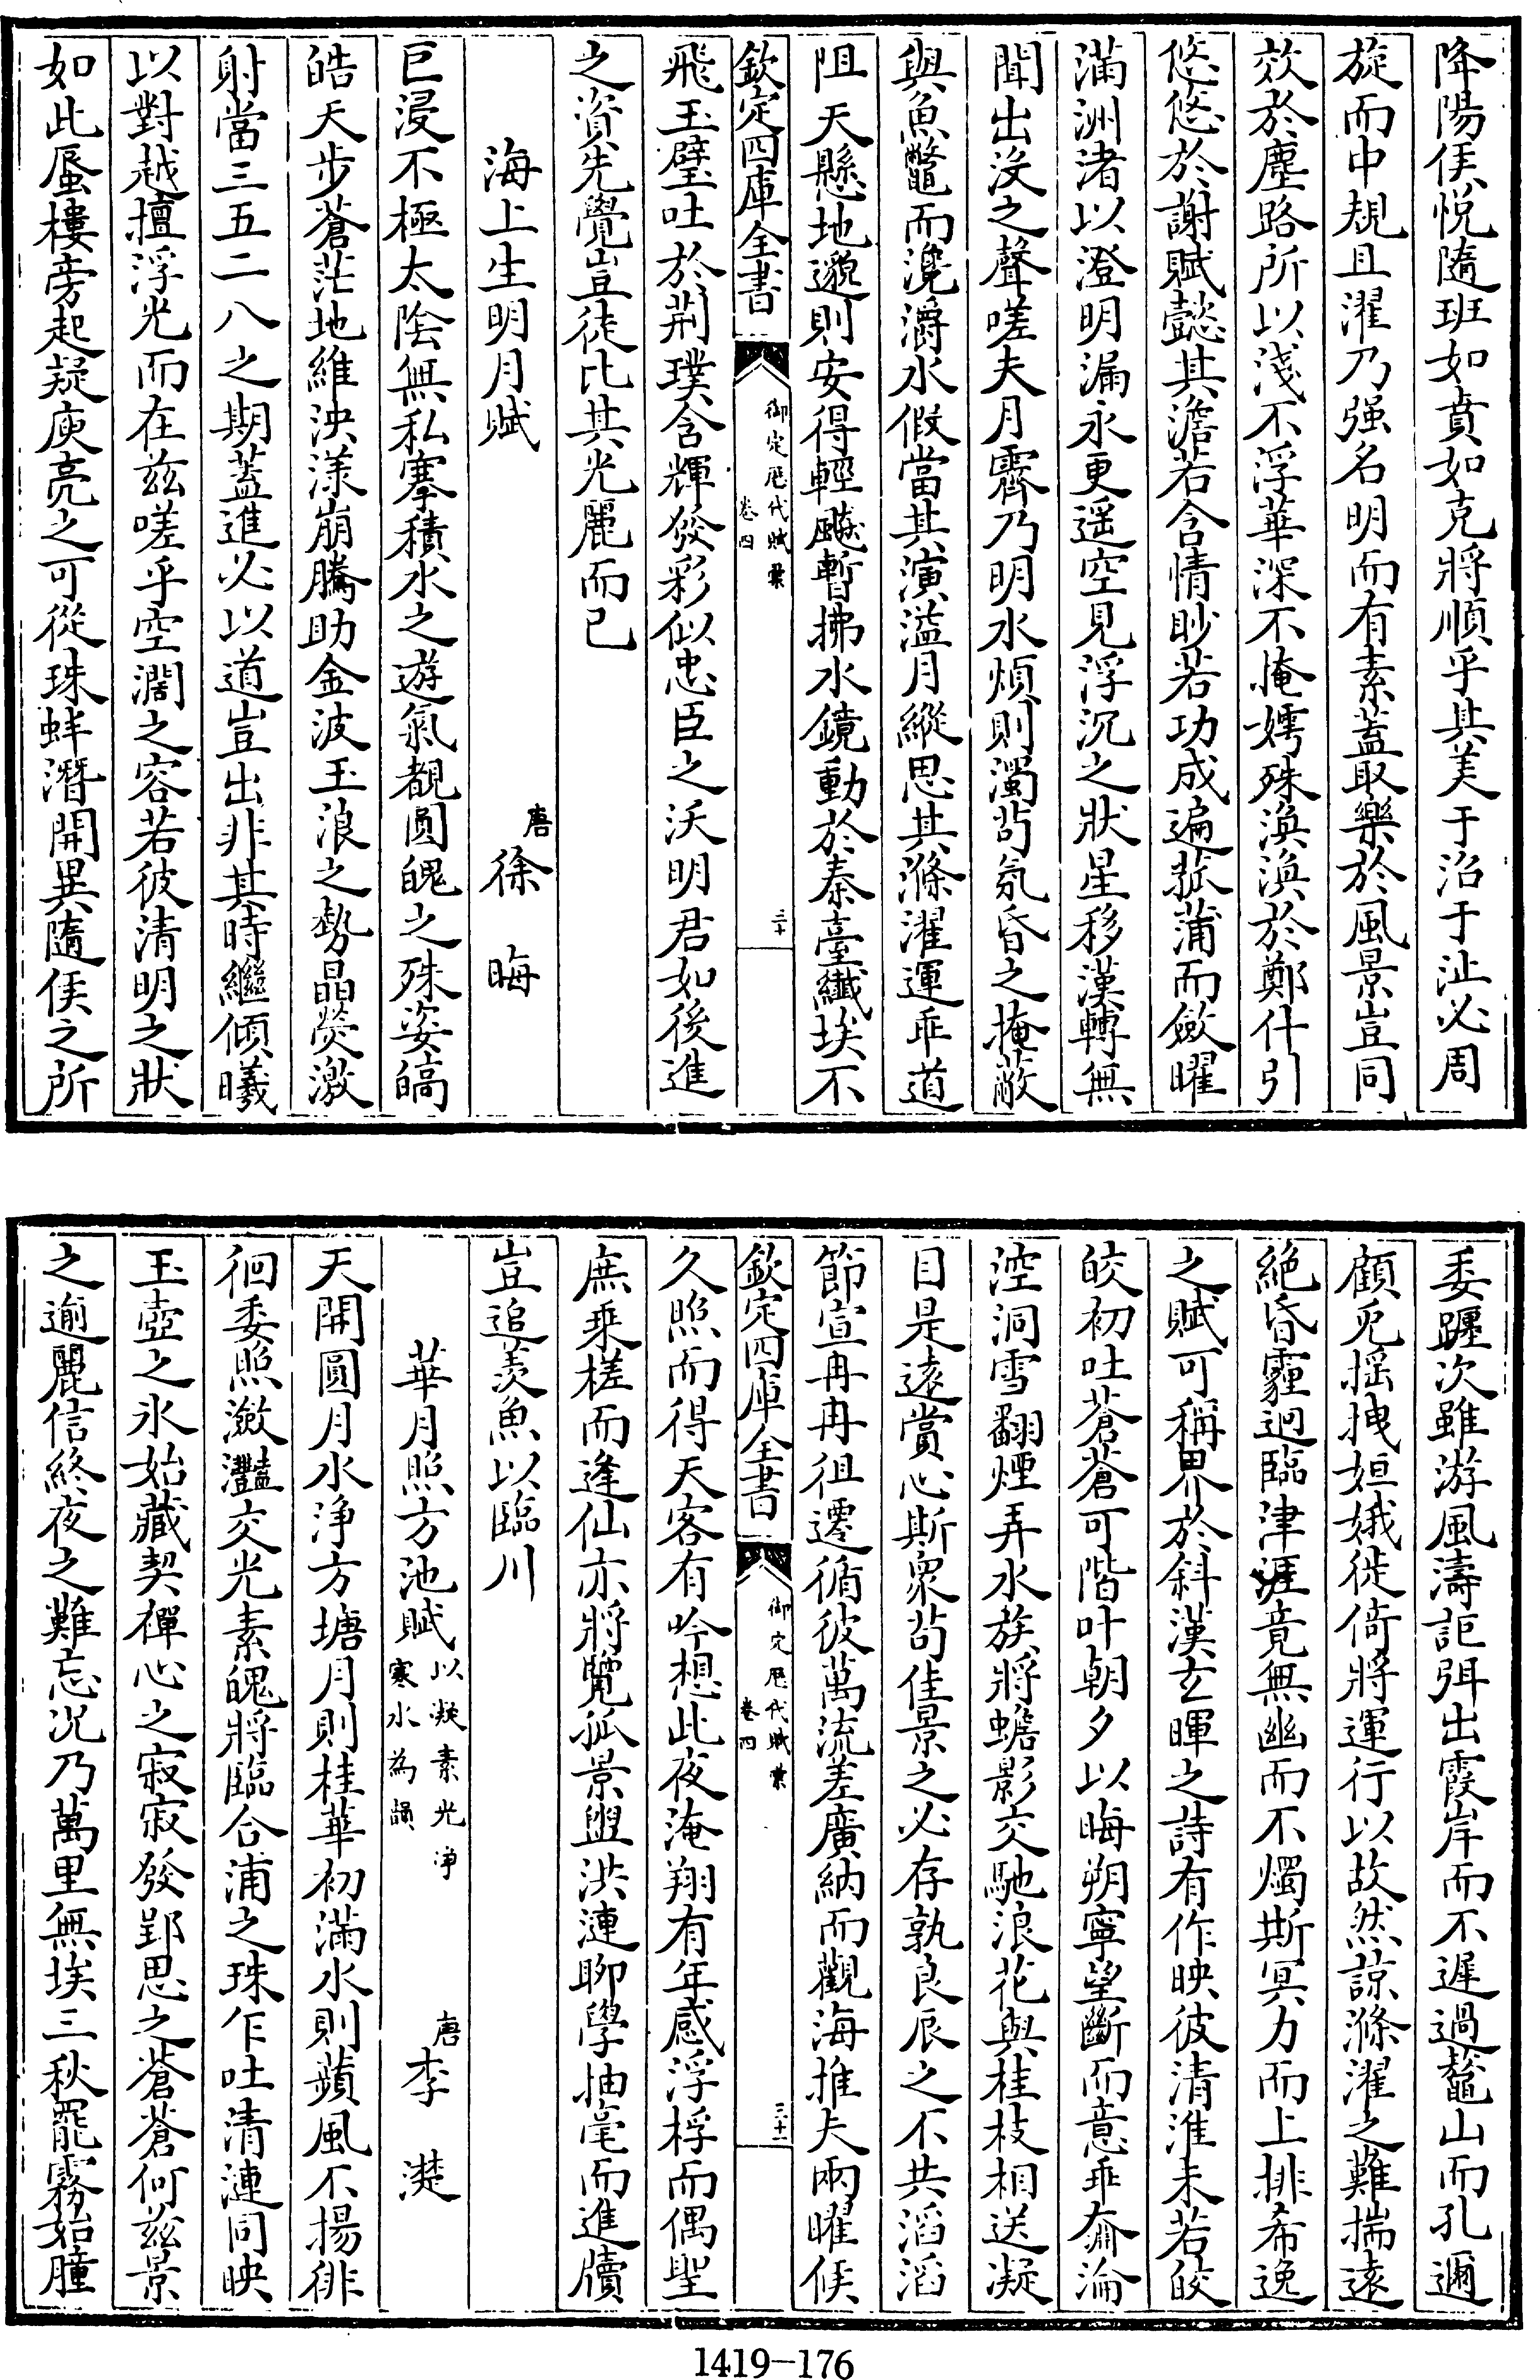 降陽侯悅隨班如賁如克將順乎其美于沼于沚必周
旋而中規且濯乃强名明而有素蓋取樂於風景豈同
效於塵路所以淺不浮華深不掩嫮殊渙渙於鄭什引
悠悠於謝賦懿其澹若含情眇若功成遍菰蒲而斂曜
滿洲渚以澄明漏永更遥空見浮沉之狀星移漢轉無
聞出没之聲嗟夫月霽乃明水煩則濁茍氛昏之掩蔽
與魚鼈而㲿灂水假當其演溢月縱思其滌濯運乖道
阻天懸地邈則安得輕飈暫拂水鏡動於秦臺纖埃不
欽定四庫全書
御定歷代賦彙
卷四
三十
飛玉璧吐於荆璞含輝發彩似忠臣之沃明君如後進
之資先覺豈徒比其光麗而已
海上生明月賦
唐徐晦
巨浸不極太陰無私搴積水之遊氣覩圓魄之殊姿皜
皓天步蒼茫地維泱漾崩騰助金波玉浪之勢晶熒激
射當三五二八之期蓋進必以道豈出非其時繼傾曦
以對越擅浮光而在兹嗟乎空濶之容若彼清明之狀
如此蜃樓旁起疑庾亮之可從珠蚌潛開異隨侯之所
委躔次雖游風濤詎弭出霞岸而不遲過鼇山而孔邇
顧兎摇拽姮娥徙倚將運行以故然諒滌濯之難揣遠
絶昏霾迥臨津涯竟無幽而不燭斯冥力而上排希逸
之賦可稱界於斜漢玄暉之詩有作映彼清淮未若皎
皎初吐蒼蒼可階叶朝夕以晦朔寧望斷而意乖奫淪
涳洞雪翻煙弄水族將蟾影交馳浪花與桂枝相送凝
目是遠賞心斯衆茍佳景之必存孰良辰之不共滔滔
節宣冉冉徂遷循彼萬流差廣納而觀海推夫兩曜候
欽定四庫全書
御定歷代賦彙
卷四
三十一
久照而得天客有吟想此夜淹翔有年感浮桴而偶聖
庶乘槎而逢仙亦將覽孤景盥洪漣聊學抽毫而進牘
豈追羡魚以臨川
華月照方池賦以凝素光浄寒水為韻
唐李濋
天開圓月水浄方塘月則桂華初滿水則蘋風不揚徘
徊委照瀲灩交光素魄將臨合浦之珠乍吐清漣同映
玉壺之氷始藏契禪心之寂寂發郢思之蒼蒼何兹景
之逾麗信終夜之難忘况乃萬里無埃三秋罷霧始瞳